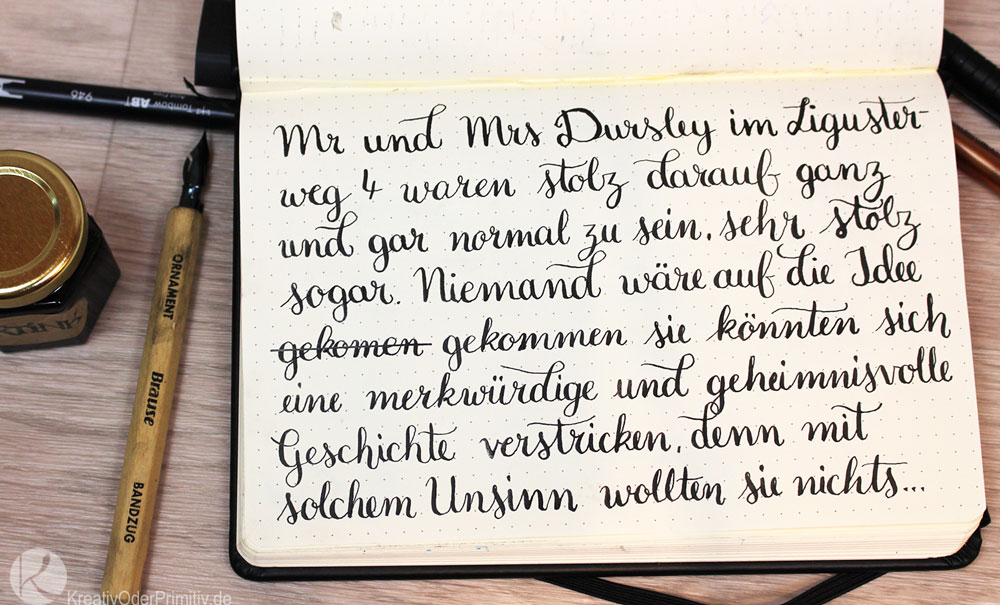 Mr und Mrs Dursley im Liguster-
weg 4 waren stolz darauf ganz
und gar normal zu sein, sehr stolz
sogar. Niemand wäre auf die Idee
gekomen gekommen sie könnten sich
eine merkwürdige und geheimnisvolle
Geschichte verstricken, denn mit
solchem Unsinn wollten sie nichts...
946 Tombow ABT
ORNAMENT
Brause
BANDZUG
KreativOderPrimitiv.de